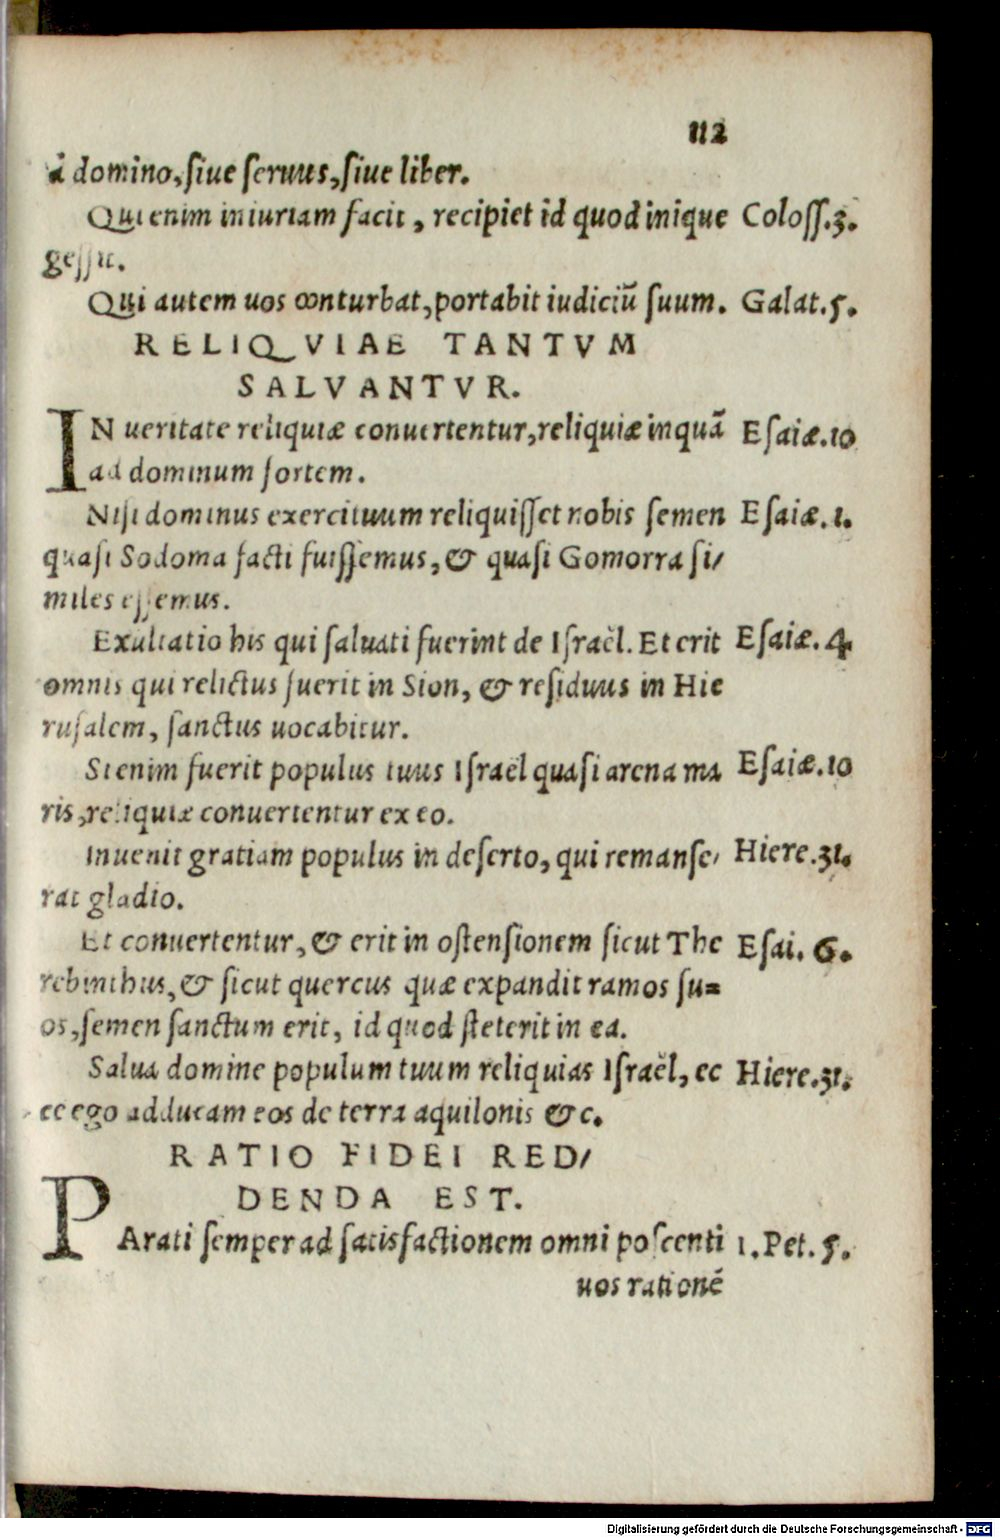 112
à domino, siue seruus, siue liber.
Qui enim iniuriam facit, recipiet id quod inique Coloss.3.
gessit.
Qui autem uos conturbat, portabit iudiciũ suum. Galat.5.
RELIQVIAE TANTVM
SALVANTVR.
IN ueritate reliquiæ conuertentur, reliquiæ inquã Esaiæ.10
ad dominum fortem.
Nisi dominus exercituum reliquisset nobis semen Esaiæ.1.
quasi Sodoma facti fuissemus, & quasi Gomorra si/
miles essemus.
Exultatio his qui saluati fuerint de Israël. Et erit Esaiæ.4
omnis qui relictus fuerit in Sion, & residuus in Hie
rusalem, sanctus uocabitur.
Si enim fuerit populus tuus Israël quasi arena ma Esaiæ.10
ris, reliquiæ conuertentur ex eo.
Inuenit gratiam populus in deserto, qui remanse/ Hiere.31.
rat gladio.
Et conuertentur, & erit in ostensionem sicut The Esai. 6.
rebinthus, & sicut quercus quæ expandit ramos su=
os, semen sanctum erit, id quod steterit in ea.
Salua domine populum tuum reliquias Israël, ec Hiere.31.
ce ego adducam eos de terra aquilonis &c.
RATIO FIDEI RED/
DENDA EST.
PArati semper ad satisfactionem omni poscenti 1.Pet.5.
uos rationẽ
Digitalisierung gefördert durch die Deutsche Forschungsgemeinschaft - DFG